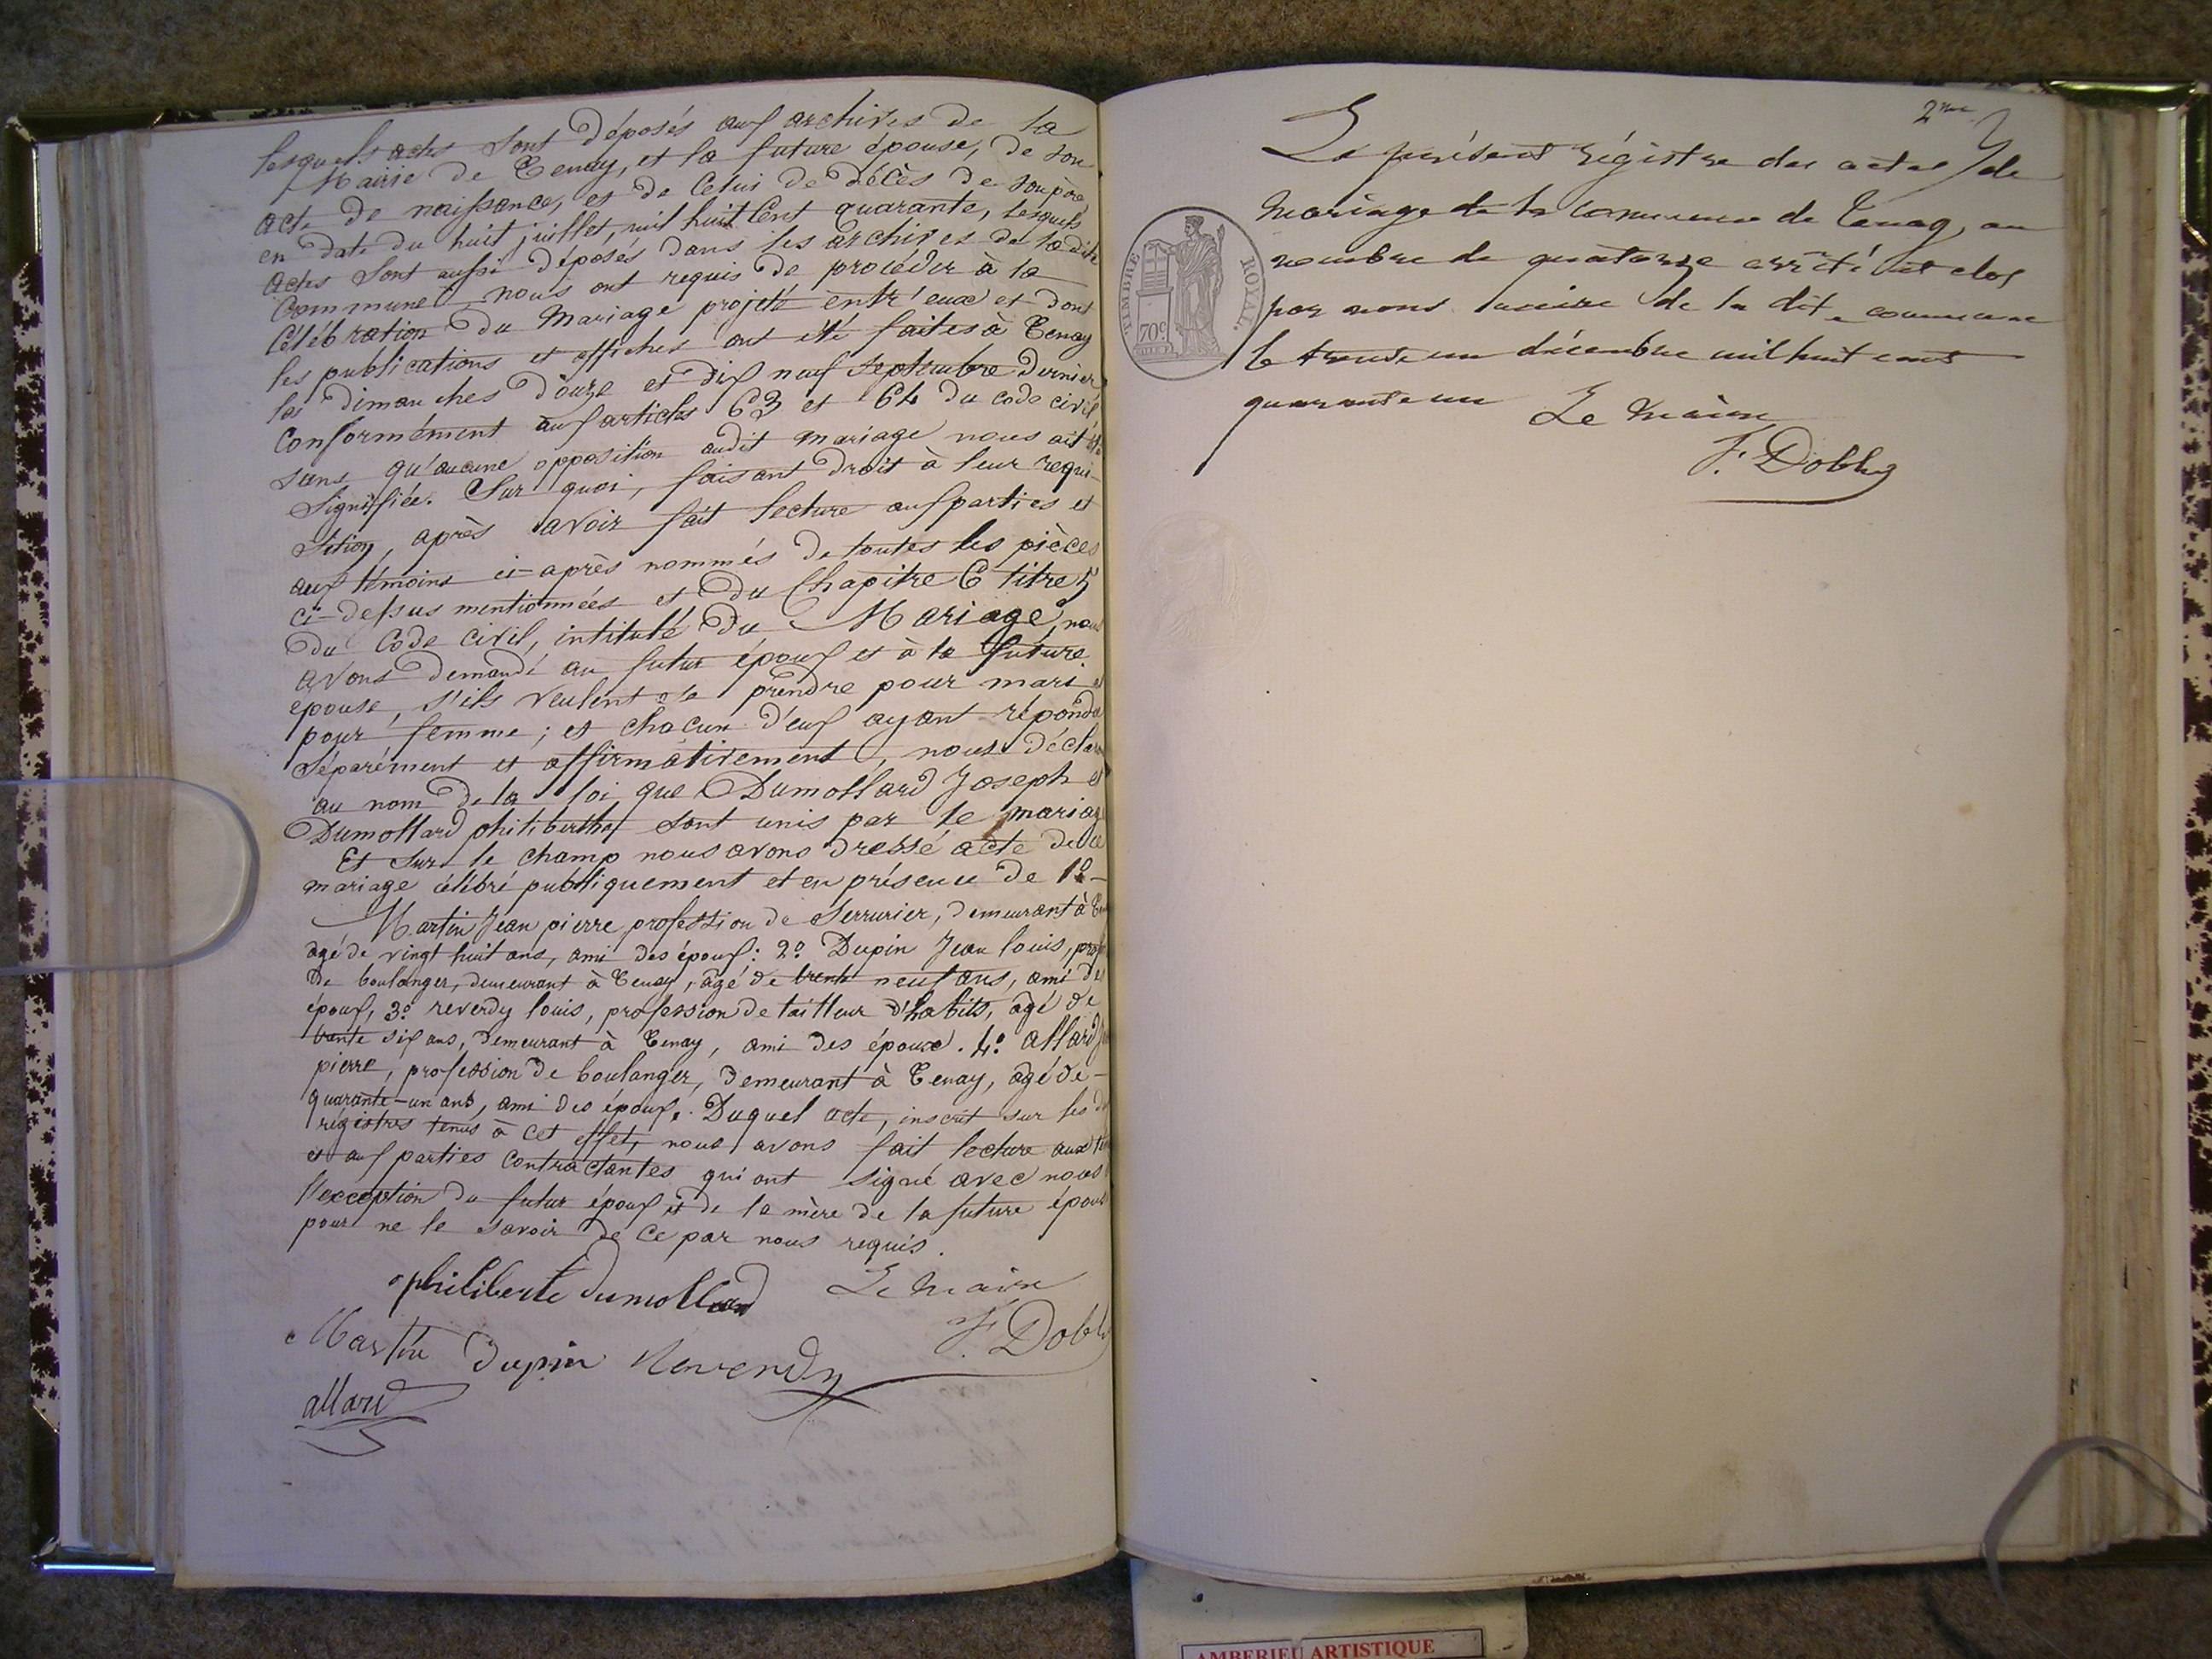 lesquels actes sont déposés aux archives de la
Mairie de Tenay, et la future épouse, de son
acte de naissance, et de celui de décès de son père
en date du huit juillet, mil huit cent quarante, lesquels
actes sont aussi déposés dans les archives de ladite
Commune, nous ont requis de procéder à la
Célébration du Mariage projeté entr'eux et dont
les publications et affiches ont été faites à Tenay
les dimanches douze et dix neuf septembre dernier
Conformément aux articles 63 et 64 du code civil
sans qu'aucune opposition audit mariage nous ait été
Signifiée. Sur quoi, faisant droit à leur requi-
sition, après avoir fait lecture aux parties et
aux témoins ci-après nommés de toutes les pièces
ci-dessus mentionnées et du Chapitre 6 titre 5
du Code civil, intitulé du Mariage, nous
avons demandé au futur époux et à la future
épouse, s'ils veulent se prendre pour mari et
pour femme; et chacun d'eux ayant répondu
Séparément et affirmativement, nous déclar
au nom de la loi que Dumollard Joseph et
Dumollard philiberthe sont unis par le mariage
Et sur le champ nous avons dressé acte de ce
mariage célébré publiquement et en présence de 1º-
Martin Jean pierre profession de Serrurier, demeurant à Ten
agé de vingt huit ans, ami des époux: 2º Dupin Jean louis, prof
de boulanger, demeurant à Tenay, âgé de trente neuf ans, ami des
époux, 3º reverdy louis, profession de tailleur d'habits, âgé de
trente six ans, demeurant à Tenay, ami des époux. 4º allard
pierre, profession de boulanger, demeurant à Tenay, âgé de-
quarante-un ans, ami des époux. Duquel acte, inscrit sur les d
régistres tenus à cet effet, nous avons fait lecture aux tém
et aux parties Contractantes qui ont signé avec nous
l'exception du futur époux et de la mère de la future épouse
pour ne le savoir de ce par nous requis.
philiberte dumollard Le maire
F. Dobl
Martin dupin Reverdy
allard
2me
Le présent régistre des actes de
Mariage de la commune de Tenay, au
nombre de quatorze arrêté et clos
par nous maire de la dite commune
le trente un décembre mil huit cent
quarante un Le maire
F. Dobl
TIMBRE ROYAL.
70c.
AMBERIEU ARTISTIQUE